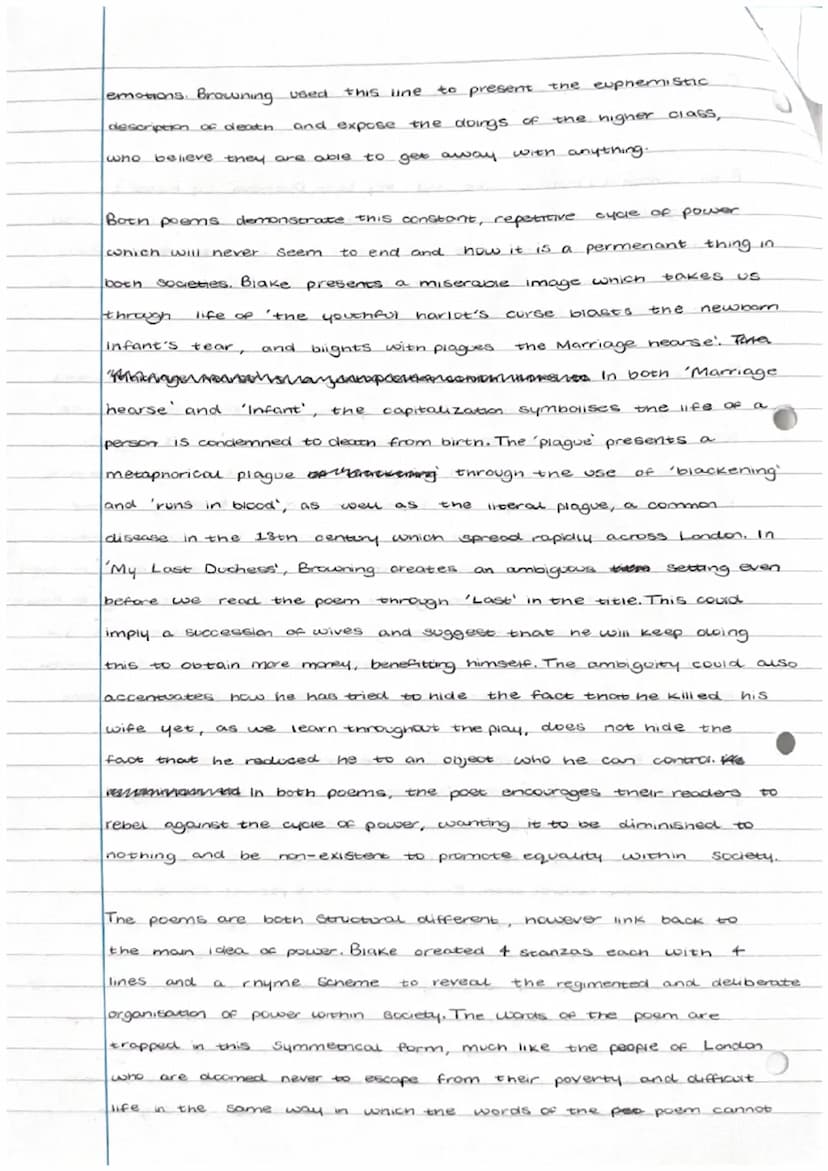 emotions. Browning used this line to present the euphemistic
description of death and expose the doings of the higher class,
who believe they are able to get away with anything.
Both poems demonstrate this constant, repetitive cycle of power
which will never seem to end and how it is a permenant thing in
both societies. Blake presents a miserable image which takes us
through life of 'the youthful harlot's curse blasts the newborn
infant's tear, and blights with plagues the Marriage hearse'. The
In both 'Marriage
hearse' and 'Infant', the capitalization symbolises the life of a
person is condemned to death from birth. The 'plague' presents a
metaphorical plague through the use of 'blackening'
and 'runs in blood', as well as the literal plague, a common
disease in the 18th century which spread rapidly across London. In
'My Last Duchess', Browning creates an ambiguous setting even
before we read the poem through 'Last' in the title. This could
imply a succession of wives and suggest that he will keep doing
this to obtain more money, benefitting himself. The ambiguity could also
accentuates how he has tried to hide the fact that he killed his
wife yet, as we learn throughout the play, does not hide the
fact that he reduced he to an object who he can control. He
In both poems, the poet encourages their readers to
rebel against the cycle of power, wanting it to be diminished to
nothing and be non-existent to promote equality within society.
The poems are both structural different, however link back to
the main idea of power. Blake created 4 stanzas each with 4
lines and a rhyme scheme to reveal the regimented and deliberate
organisation of power within society. The words of the poem are
trapped in this symmetrical form, much like the people of London
who are doomed never to escape from their poverty and difficult
life in the same way in which the words of the poe poem cannot